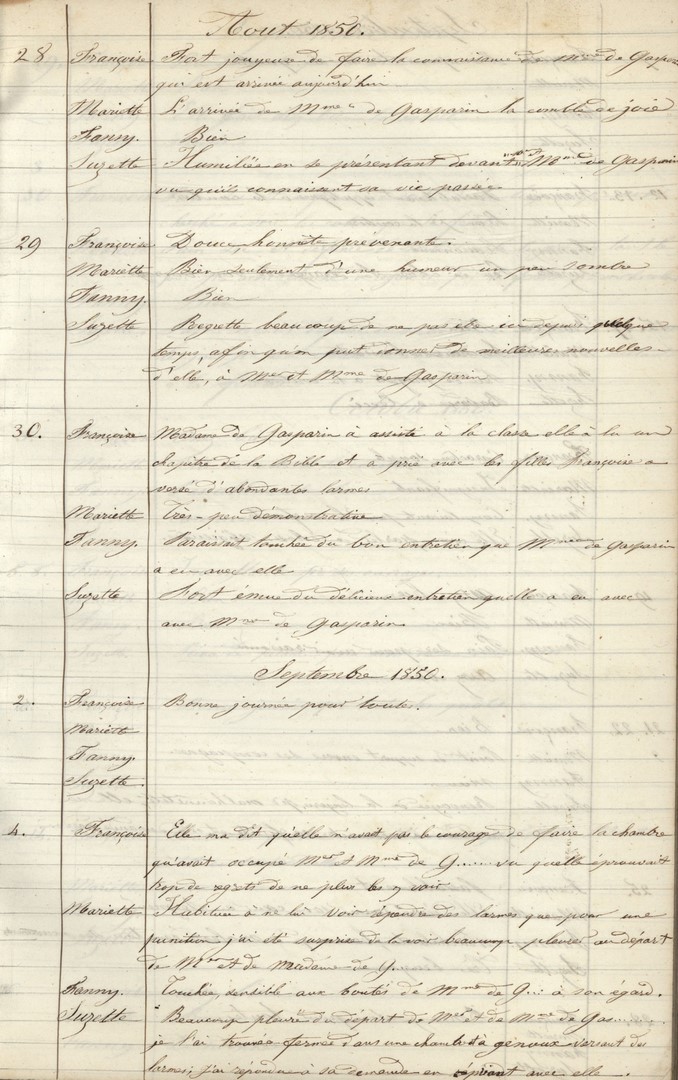 Aout 1850.
28 Françoise Fort joyeuse de faire la connaissance de Mme de Gasparin
qui est arrivée aujourd'hui
Mariette L'arrivée de Mme de Gasparin la comble de joie
Fanny. Bien
Suzette Humiliée en se présentant devant Mme de Gasparin
vu qu'ils connaissent sa vie passée
29 Françoise Douce, honnête prévenante.
Mariette Bien seulement d'une humeur un peu sombre
Fanny. Bien
Suzette Regrette beaucoup de ne pas être ici depuis quelque
temps, afin qu'on put donner de meilleures nouvelles
d'elle, à Mr et Mme de Gasparin
30. Françoise Madame de Gasparin à assisté à la classe elle à lu un
chapitre de la Bible et a prié avec les filles Françoise a
versé d'abondantes larmes
Mariette Très-peu démonstrative
Fanny. Paraissait touchée du bon entretien que Mme de Gasparin
a eu avec elle
Suzette Fort émue du délicieux entretien qu'elle a eu avec
avec Mme de Gasparin
Septembre 1850.
2. Françoise Bonne journée pour toutes.
Mariette
Fanny.
Suzette
4. Françoise Elle m'a dit qu'elle n'avait pas le courage de faire la chambre
qu'avait occupé Mr & Mme de G...... vu qu'elle éprouvait
trop de regrets de ne plus les y voir
Mariette Habituée à ne lui voir répandre des larmes que pour une
punition j'ai été surprise de la voir beaucoup pleurer au départ
de Mr et de Madame de G...
Fanny. Touchée, sensible aux bontés de Mme de G... à son égard.
Suzette Beaucoup pleuré du départ de Mr et de Mme de Gas......
je l'ai trouvée fermée dans une chambre à genoux versant des
larmes; j'ai repondu à sa demande en priant avec elle.